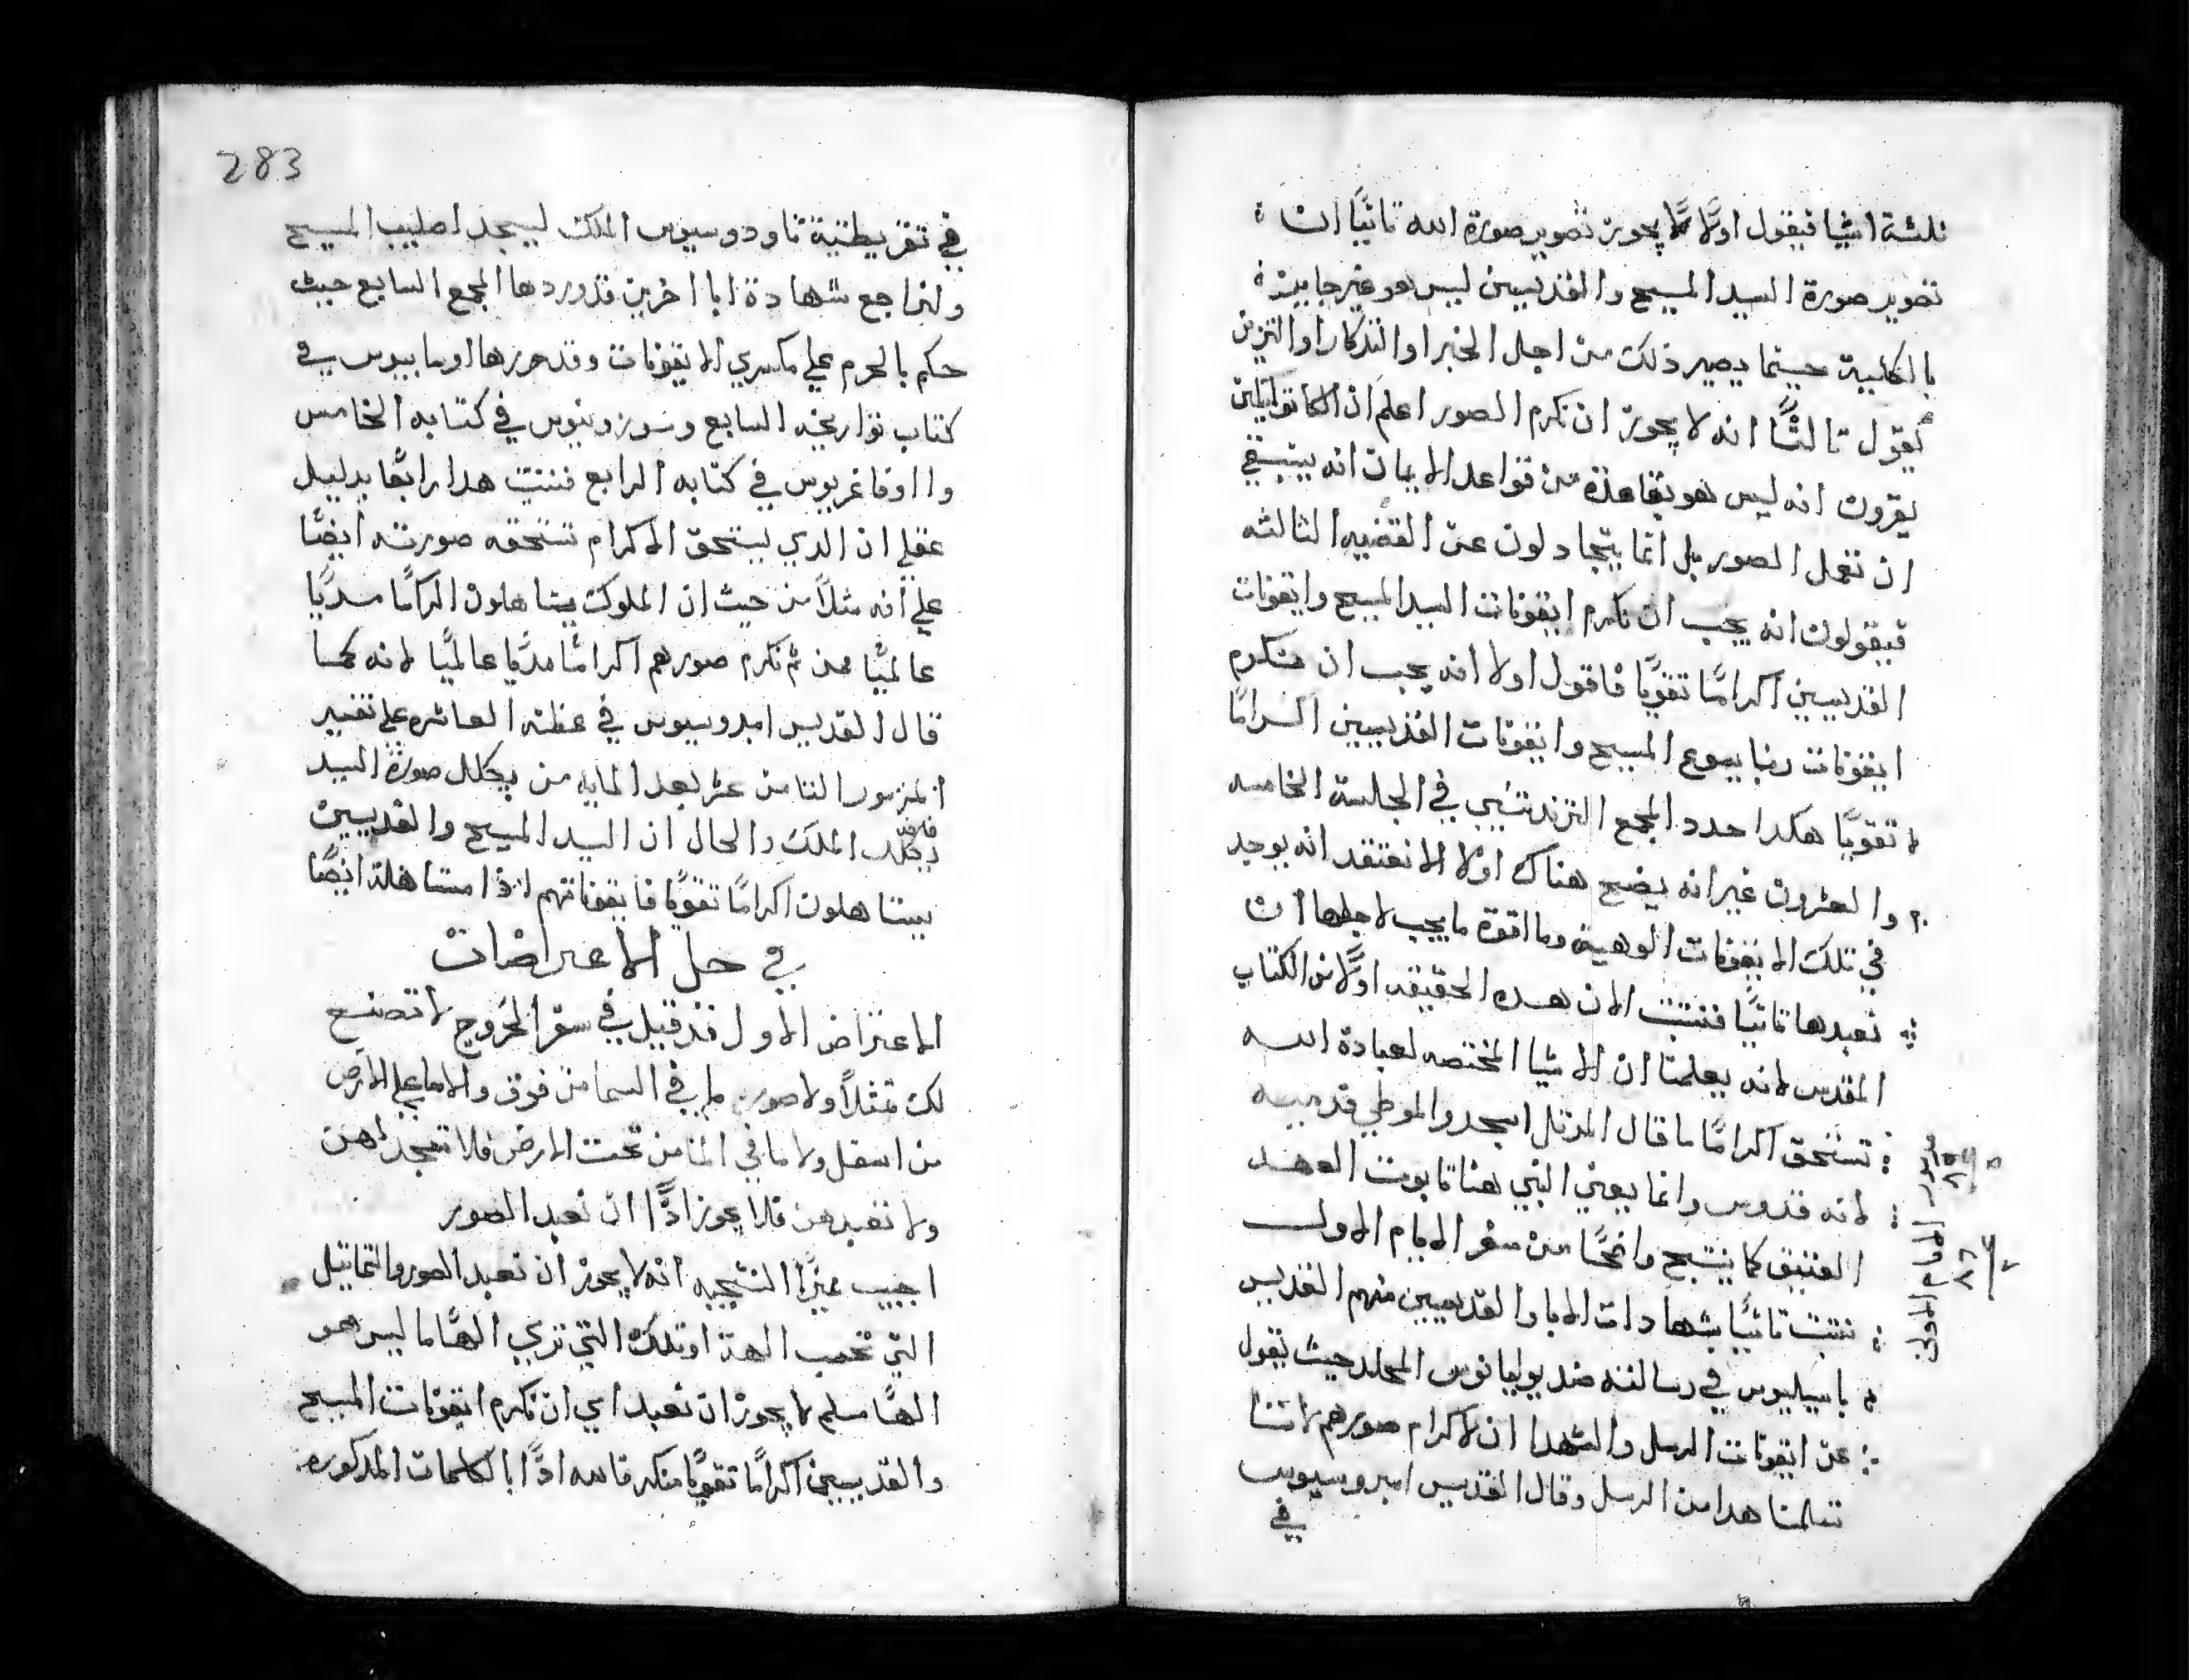 ثلثة اشيا فيقول اولًا لا يجوز تصوير صورة الله ثانيًا ان
تصوير صورة السيد المسيح والقديسين ليس هو غير جايز
بالكلية حينما يصير ذلك من اجل الخبر او التذكار او التزين
يقول ثالثًا انه لا يجوز ان نكرم الصور اعلم ان الكاتوليكين
يقرون انه ليس هو بقاعدة من قواعد الايمان انه ينبغي
ان نعمل الصور بل انما يتجادلون عن القضيه الثالثه
فيقولون انه يجب ان نكرم ايقونات السيد المسيح وايقونات
القديسين اكرامًا تقويًا فاقول اولا انه يجب ان نكرم
ايقونات ربنا يسوع المسيح وايقونات القديسين اكرامًا
تقويًا هكدا حدد المجمع التردنتيني في الجلسة الخامسه
والعشرون غير انه يضح هناك اولا الا نعتقد انه يوجد
في تلك الايقونات الوهية وما اقوة ما يجب لاجلها ان
نعبدها ثانيًا فنثبت الان هده الحقيقه اولًا من الكتاب
المقدس لانه يعلمنا ان الاشيا المختصه لعبادة الله
تستحق اكرامًا ما قال المرتل اسجدوا لموطي قدميه
لانه قدوس وانما يعني النبي هنا تابوت العهد
العتيق كما ينتج واضحًا من سفر الايام الاول
نثبت ثانيًا بشهادات الابا والقديسين منهم القديس
باسيليوس في رسالته ضد يوليانوس المحلد حيث يقول
عن ايقونات الرسل والشهدا ان لاكرام صورهم لاننا
تسلمنا هدا من الرسل وقال القديس امبروسيوس
في
مزمور
الايام الاول
283
في تقريظتية تاودوسيوس الملك ليسجد اصليب المسيح
ولنراجع شهادة ابا اخرين قد وردها المجمع السابع حيث
حكم بالحرم علي مكسري الايقونات وقد حررها اوسابيوس في
كتاب تواريخه السابع وسوزومنوس في كتابه الخامس
وااوفاغريوس في كتابه الرابع فنثبت هدا رابعًا بدليل
عقلي ان الدي يستحق الاكرام تستحقه صورته ايضًا
علي انه مثلًا من حيث ان الملوك يستاهلون اكرامًا مدنيًا
عالميًا فمن ثم نكرم صورهم اكرامًا مدنيًا عالميًا لانه كما
قال القديس امبروسيوس في عظته العاشره علي تفسير
المزمور الثامن عشر بعد المايه من يكلل صورة السيد
فانه يكلل الملك والحال ان السيد المسيح والقديسين
يستاهلون اكرامًا تقويًا فايقوناتهم اذا مستاهلة ايضًا
في حل الاعتراضات
الاعتراض الاول قد قيل في سفر الخروج لا تصنع
لك تمثلًا ولا صورة ما في السما من فوق ولا ما علي الارض
من اسفل ولا ما في الما من تحت الارض فلا تسجد لهن
ولا تعبدهن فلا يجوز ادًا ان نعبد الصور
اجيب مميزًا النتيجه انه لا يجوز ان نعبد الصور والتماثيل
التي تحسب الهة او تلك التي تري الهًا ما ليس هو
الهًا مسلم لا يجوز ان نعبد اي ان نكرم ايقونات المسيح
والقديسين اكرامًا تقويًا منكر فالله ادًا بالكلمات المدكوره